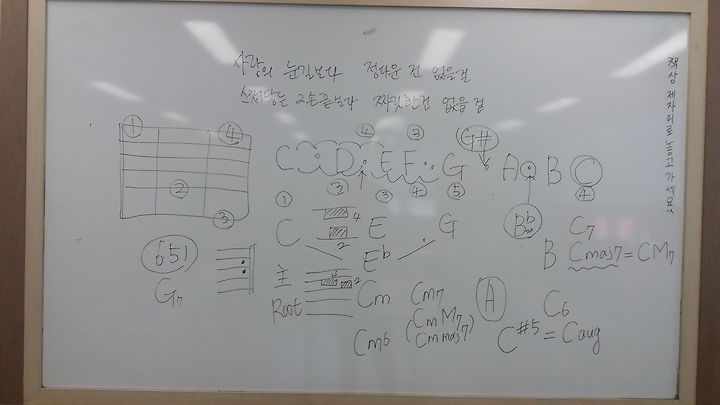 사랑의 눈길보다 정다운 건 없을걸
스쳐닿는 그손끝보다 짜릿한건 없을걸
책상 제자리로 놓고 가세요
① ④
② ③
④ ③ G#
C D E F G A B C
① ② ③ ④ ⑤ ④
C 4 2 E G Bb C7
Eb B Cmaj7 = CM7
651
G7
主 2
Root Cm Cm7 A C6
(CmM7
Cmmaj7)
Cm6 C#5 = Caug